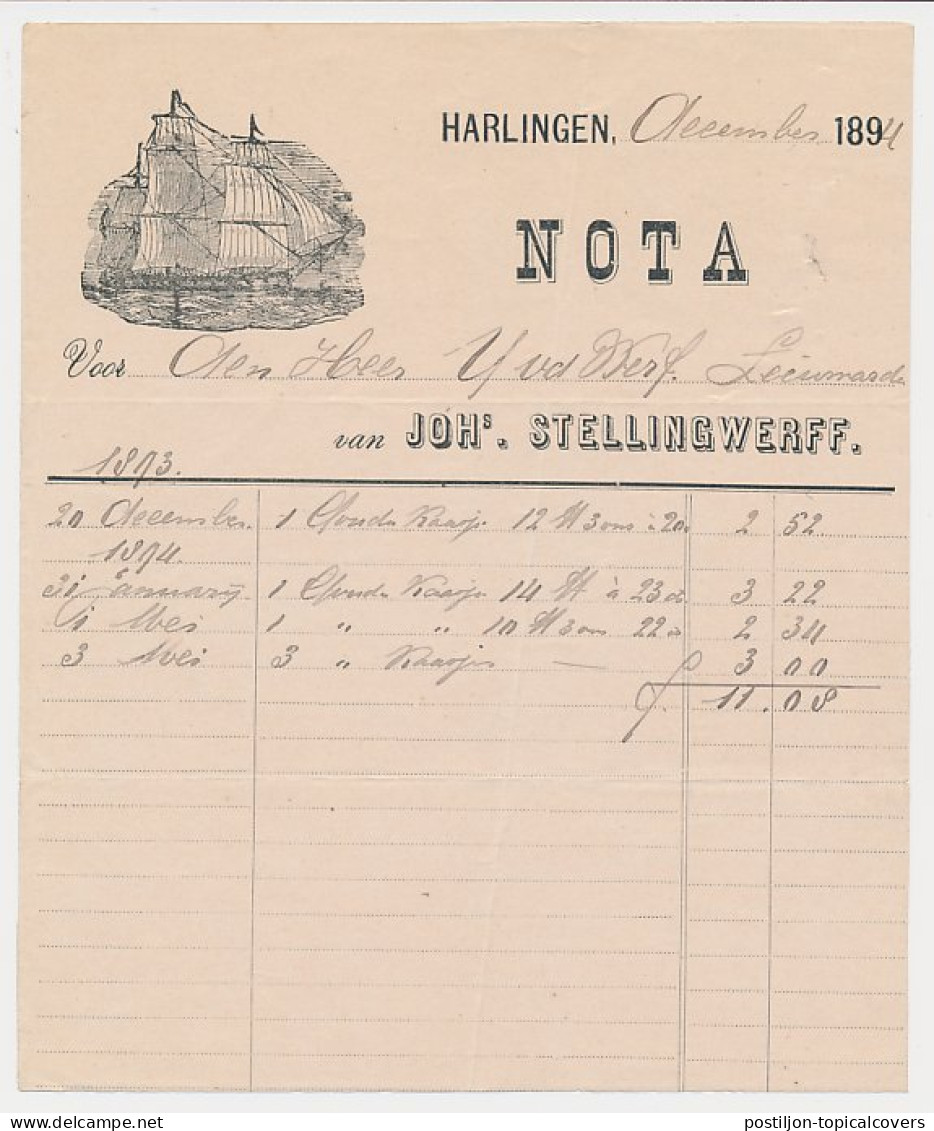 HARLINGEN, December 1894
NOTA
Voor den Heer Y vd Werf. Leeuwarden
van JOHs. STELLINGWERFF.
1893.
20 December 1 Goudse Kaasje 12 ℔ 3 ons à 20 2 52
1894.
31 Januarij 1 Goudse Kaasje 14 ℔ à 23 ct 3 22
1 Mei 1 " " 10 ℔ 3 ons 22 2 34
3 Mei 3 " Kaasjes — 3 00
f. 11.08
postiljon-topicalcovers